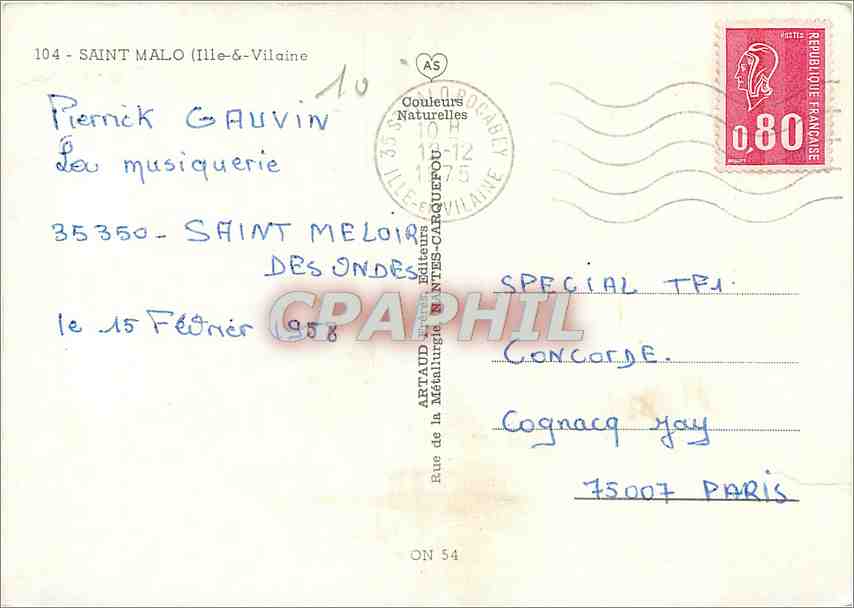 104 - SAINT MALO (Ille-&-Vilaine
10
AS
Couleurs
Naturelles
Pierrick GAUVIN
La musiquerie
35350 - SAINT MELOIR
DES ONDES
le 15 Février 1958
35 ST MALO ROCABEY
10 H
12-12
1975
ILLE-et-VILAINE
POSTES
REPUBLIQUE FRANÇAISE
0,80
ARTAUD Frères, Editeurs
Rue de la Métallurgie, NANTES-CARQUEFOU
CPAPHIL
SPECIAL TF1.
CONCORDE.
Cognacq Jay
75007 PARIS
ON 54